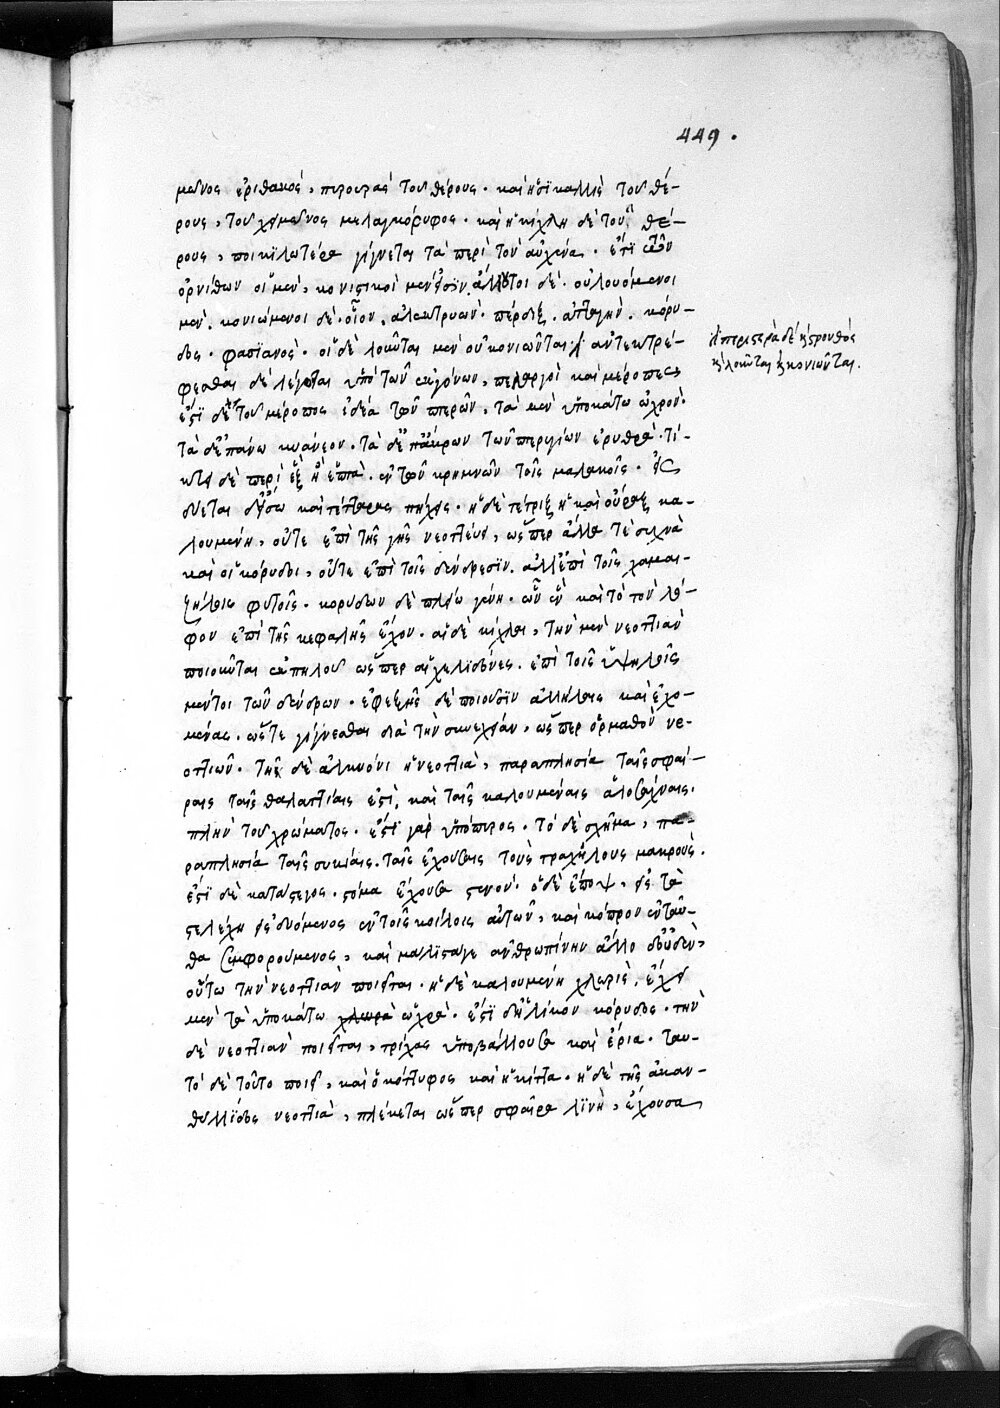 449.
μῶνος ἐριθακός, πυρουρὰς τοῦ θέρους. καὶ ἡ συκαλλὶς τοῦ θέ-
ρους, τοῦ χειμῶνος μελαγκόρυφος. καὶ ἡ κίχλη δὲ τοῦ θέ-
ρους, ποικιλωτέρα γίγνεται τὰ περὶ τὸν αὐχένα. ἔτι τῶν
ὀρνίθων οἱ μὲν, κονιστικοὶ μὲν εἰσὶν ἄλλοι δὲ. οὐ λουόμενοι
μὲν. κονιώμενοι δὲ. οἷον, ἀλεκτρυών. πέρδιξ. ἀτταγήν. κόρυ-
δος. φασιανός. οἱ δὲ λοῦνται μὲν οὐ κονιῶνται. ἀντεκτρέ-
φεσθαι δὲ λέγεται ὑπὸ τῶν ἐκγόνων, πελαργοὶ καὶ μέροπες
ἐστὶ δὲ τοῦ μέροπος ἰδέα τῶν πτερῶν, τὰ μὲν ὑποκάτω ὠχρόν.
τὰ δὲ ἐπάνω κυάνεον. τὰ δὲ ἐπ' ἄκρων τῶν πτερυγίων ἐρυθρά. τί-
κτει δὲ περὶ ἓξ ἢ ἑπτὰ. ἐν τῶν κρημνῶν τοῖς μαλακοῖς. εἰς
δύεται δ' εἴσω καὶ τέτταρας πήχεις. ἡ δὲ τέτριξ ἣ καὶ οὔραξ κα-
λουμένη, οὔτε ἐπὶ τῆς γῆς νεοττεύει, ὥσπερ ἄλλα τε συχνὰ
καὶ οἱ κόρυδοι, οὔτε ἐπὶ τοῖς δένδρεσιν. ἀλλ' ἐπὶ τοῖς χαμαι-
ζήλοις φυτοῖς. κορύδων δὲ πλείω γένη. ὧν ἓν καὶ τὸ τὸν λό-
φον ἐπὶ τῆς κεφαλῆς ἔχον. αἱ δὲ κίχλαι, τὴν μὲν νεοττιὰν
ποιοῦνται ἐκ πηλοῦ ὥσπερ αἱ χελιδόνες. ἐπὶ τοῖς ὑψηλοῖς
μέντοι τῶν δένδρων. ἐφεξῆς δὲ ποιοῦσιν ἀλλήλαις καὶ ἐχο-
μένας. ὥστε γίγνεσθαι διὰ τὴν συνεχείαν, ὥσπερ ὁρμαθὸν νε-
οττιῶν. τῆς δὲ ἀλκυόνι ἡ νεοττιὰ, παραπλησία ταῖς σφαί-
ραις ταῖς θαλαττίαις ἐστὶ, καὶ ταῖς καλουμέναις ἁλοσάχναις.
πλὴν τοῦ χρώματος. ἔστι γὰρ ὑπόπυρος. τὸ δὲ σχῆμα, πα-
ραπλησία ταῖς σικύαις. ταῖς ἐχούσαις τοὺς τραχήλους μακρούς.
ἐστὶ δὲ κατάστεγος. στόμα ἔχουσα στενόν. ὁ δὲ ἔποψ, εἰς τὰ
στελέχη εἰσδυόμενος ἐν τοῖς κοίλοις αὐτῶν, καὶ κόπρον ἐνταῦ-
θα συμφορούμενος, καὶ μάλιστά γε ἀνθρωπίνην ἄλλο δ' οὐδὲν,
οὕτω τὴν νεοττιὰν ποιεῖται. ἡ δὲ καλουμένη χλωρὶς, ἔχει
μὲν τὰ ὑποκάτω χλωρὰ ὠχρά. ἐστὶ δ' ἡλίκον κόρυδος. τὴν
δὲ νεοττιὰν ποιεῖται, τρίχας ὑποβάλλουσα καὶ ἔρια. ταυ-
τὸ δὲ τοῦτο ποιεῖ, καὶ ὁ κόττυφος καὶ ἡ κίττα. ἡ δὲ τῆς ἀκαν-
θυλλίδος νεοττιὰ, πλέκεται ὥσπερ σφαῖρα λινῆ, ἔχουσα
ἡ περιστερὰ δὲ κ στρουθὸς
κ λοῦνται κ κονιῶνται.